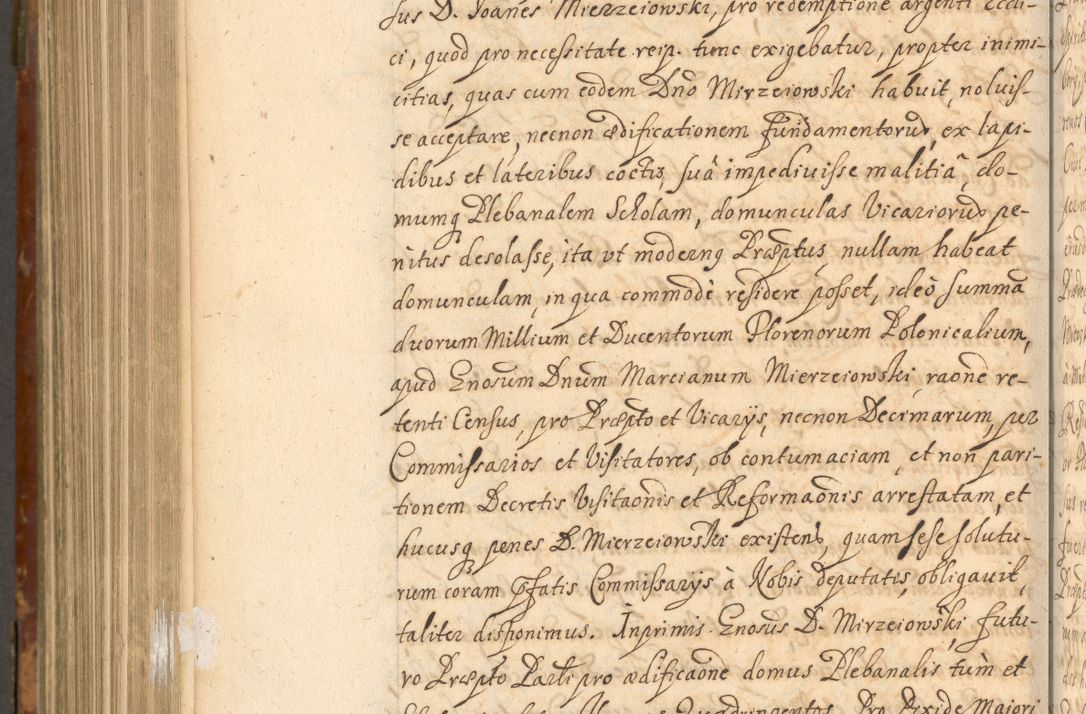 sus D. Joanes Mierzeiowski, pro redemptione argenti Eccli-
ci, quod pro necessitate reip. tunc exigebatur, propter inimi-
citias, quas cum eodem Dnō Mirzeiowski habuit, noluis-
se acceptare, necnon ædificationem fundamentorū, ex lapi-
dibus et lateribus coctis, suâ impediuisse malitiâ, do-
mumq Plebanalem Scholam, domunculas Vicariorū pe-
nitus desolasse, ita vt modernq Præptus, nullam habeat
domunculam, in qua commodè residere posset, ideò summā
duorum Millium et Ducentorum Florenorum Polonicalium,
apud Enosum Dnum Marcianum Mierzeiowski, raōne re-
tenti Census, pro Præpto et Vicarijs, necnon Decimarum, per
Commissarios et Visitatores, ob contumaciam, et non pari-
tionem Decretis Visitaōnis et Reformaōnis arrestatam, et
hucusq penes D. Mierzeiowski existens, quam sese solutu-
rum coram pfatis Commissarijs à Nobis deputatis, obligauit,
taliter disponimus. Inprimis Enosus D. Mirzeiowski, futu-
ro Præpto Parti pro ædificaōne domus Plebanalis tum et
Quadringentos. Pro Pixide Maiori